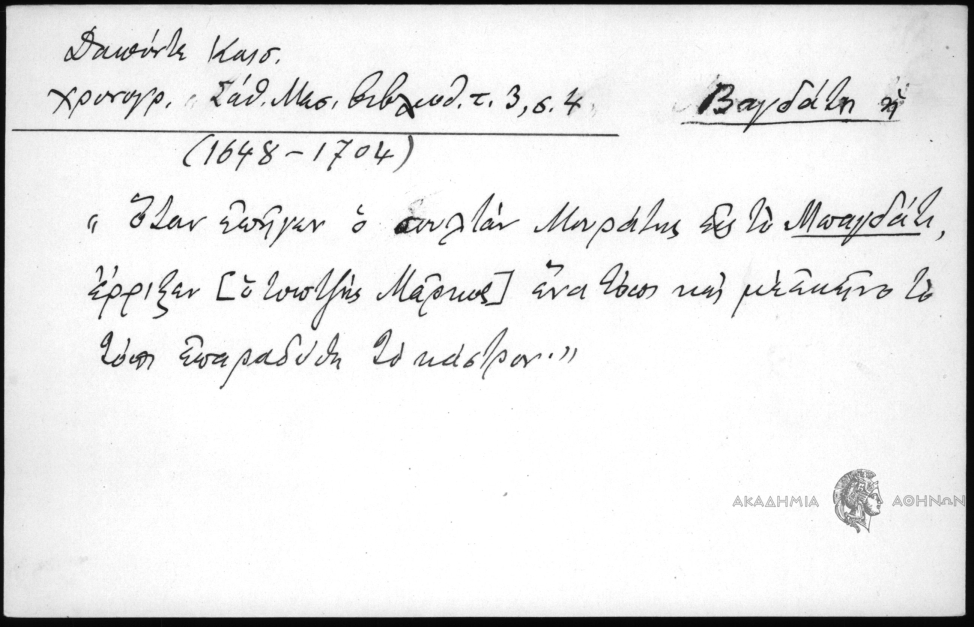 Δαπόντε Καισ.
χρονογρ. Σάθ. Μεσ. βιβλιοθ. τ. 3, σ. 4
Βαγδάτη ἡ
(1648-1704)
„ Ὅταν ἐπῆγεν ὁ σουλτὰν Μουράτης εἰς τὸ Μπαγδάτι,
ἔρριξεν [ὁ τοπτζῆς Μᾶρκος] ἕνα τόπι καὶ μὲ ἐκεῖνο τὸ
τόπι ἐπαραδόθη τὸ κάστρον."
ΑΚΑΔΗΜΙΑ ΑΘΗΝΩΝ